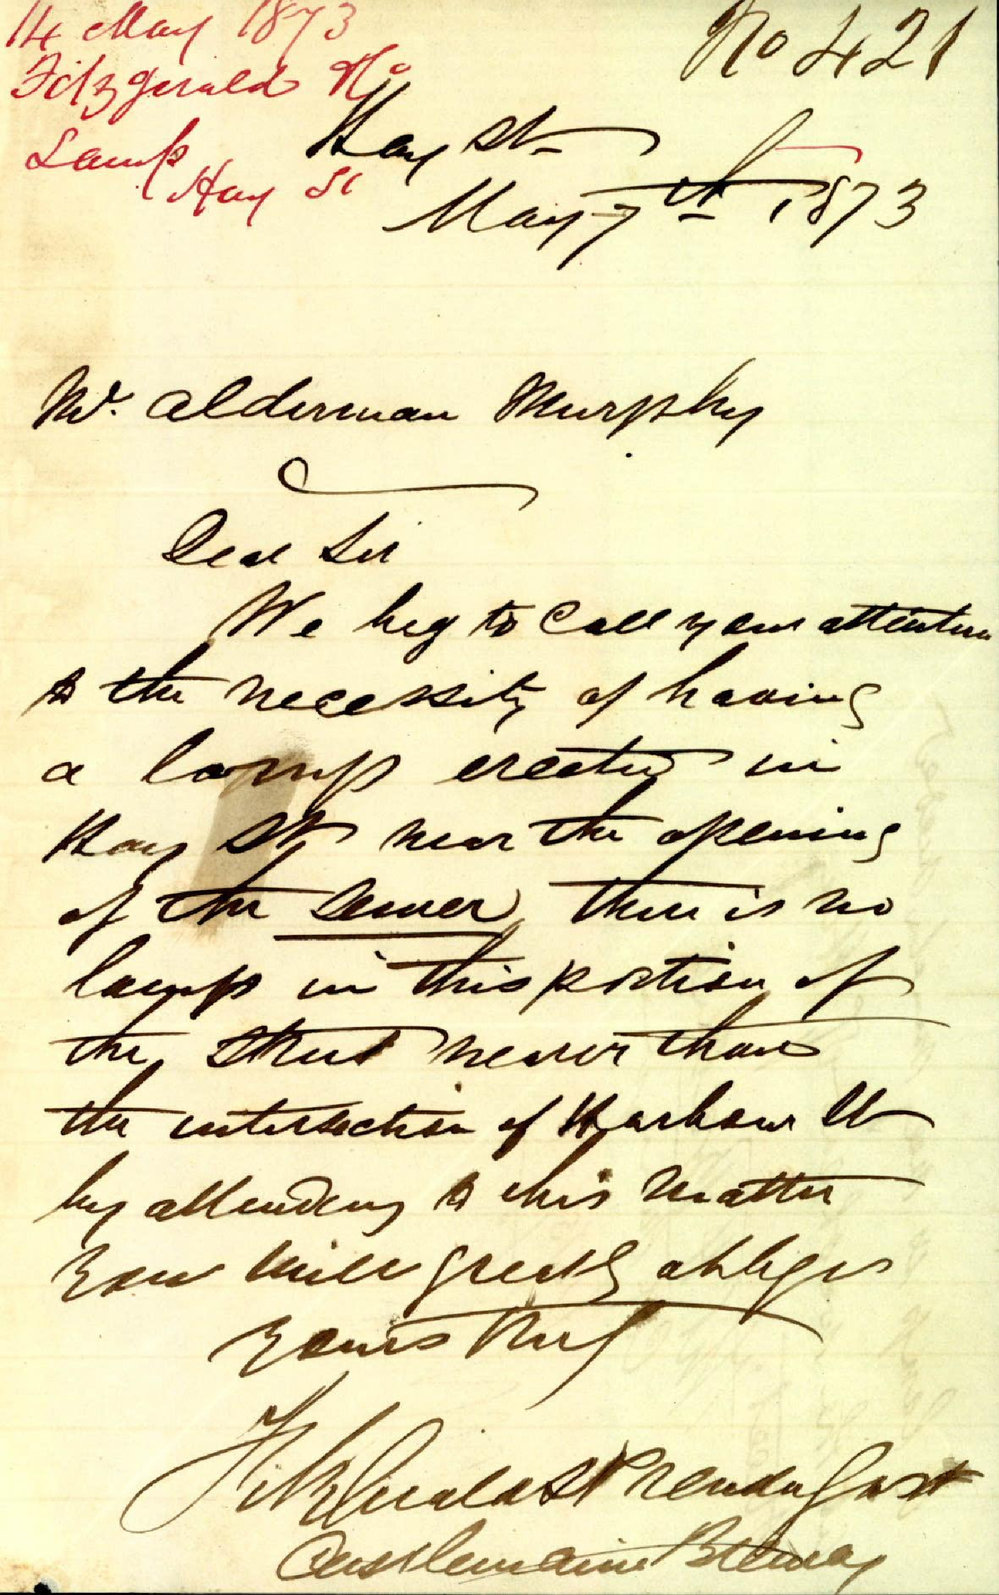 14 May 1873
Fitzgerald &
Lamp
Hay St
No 421
Hay St
May 7th 1873
Mr. Alderman Murphy
Dear Sir
We beg to Call your attention
to the necessity of having
a lamp erected in
Hay St near the opening
of the Sewer, there is no
lamp in this portion of
the Street nearer than
the intersection of Harbour St
by attending to this matter
you will greatly oblige us
Yours Truly
Fitzgerald & Prendergast
Castlemaine Brewery